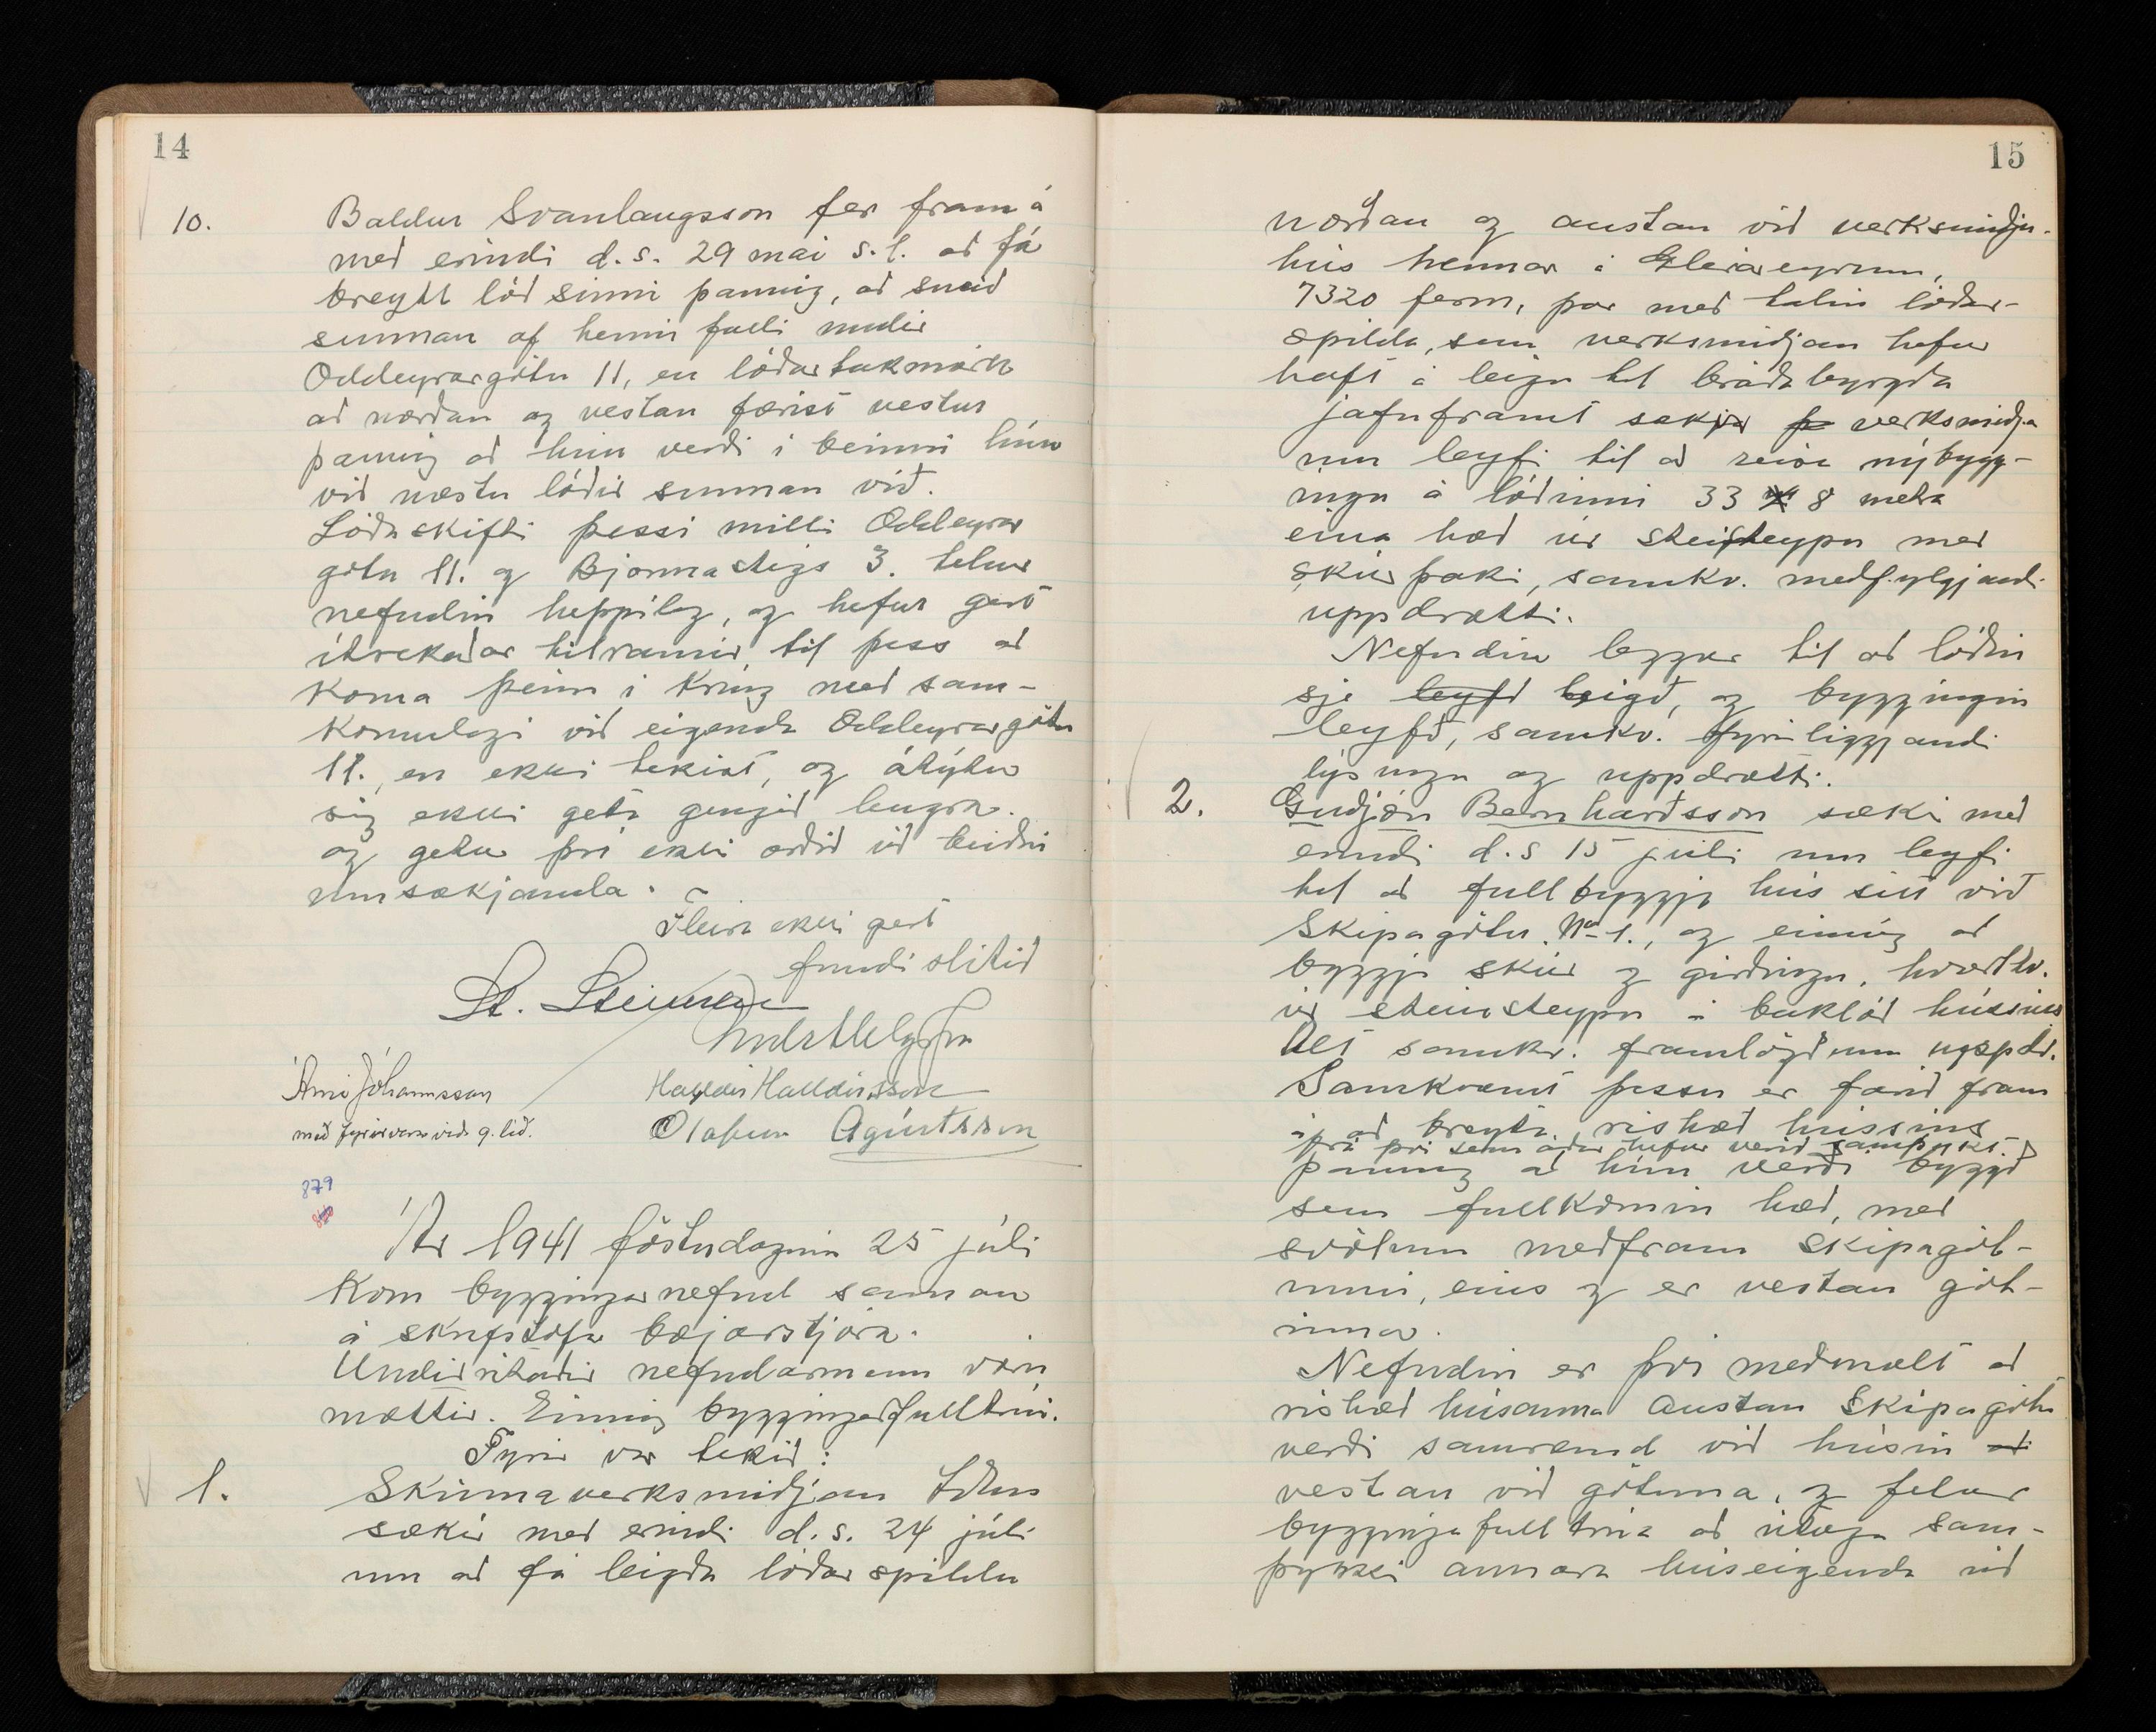 14
10. Baldur Svanlaugsson fer fram á
með erindi d.s. 29 mai s.l. að fá
breytt lóð sinni þannig, að sneið
sunnan af henni falli undir
Oddeyrargötu 11, en lóðartakmörk
að norðan og vestan færist vestur
þannig að hún verði i beinni línu
við næstu lóðir sunnan við.
Lóðaskifti þessi milli Oddeyrar
götu 11. og Bjarmastigs 3. telur
nefndin heppileg, og hefur gert
itrekadar tilraunir til þess að
koma þeim i kring með sam-
komulagi við eigenda Oddeyrargötu
11., en ekki tekist, og álýtur
sig ekki geta gengið lengra.
og getur þvi ekki orðið við beiðni
umsækjanda.
Fleira ekki gert
fundi slitið
St. Steinsen
Indr. Helgason
Árni Jóhannsson
með fyrirvara við 9. lið.
Halldór Halldórsson
Olafur Agústsson
879
Ár 1941 föstudaginn 25 júli
kom bygginganefnd saman
á skrifstofu bæjarstjóra.
Undirritaðir nefndarmenn voru
mættir. Einnig byggingarfulltrúi.
Fyrir var tekið:
1. Skinnaverksmiðjan Iðunn
sækir með erindi d.s. 24 júli
um að fá leigða lóðarspildu
15
norðan og austan við verksmiðju-
hús hennar á Gleráreyrum,
7320 ferm, þar með talin lóðar-
spilda, sem verksmiðjan hefur
haft á leigu til bráðabyrgða
jafnframt sækir verksmiðja
um leyfi til að reisa nýbygg-
ingu á lóðinni 33 x 8 metra
eina hæð úr steinsteypu með
skúrþaki, samkv. meðfylgjandi
uppdrætti.
Nefndin leggur til að lóðin
sje leyfð leigð, og byggingin
leyfð, samkv. fyrirliggjandi
lýsingu og uppdrætti.
2. Guðjón Bernharðsson sæki með
erindi d.s 15 júli um leyfi
til að fullbyggja hús sitt við
Skipagötu No 1., og einnig að
byggja skúr og girðingu, hvorttv.
úr steinsteypu á baklóð hússins
Alt samkv. framlögðum uppdr.
Samkvæmt þessu er farið fram
á að breyta rishæð hússins
frá þvi sem áður hefur verið samþykt.
þannig að hún verði byggð
sem fullkomin hæð, með
svölum meðfram Skipagöt-
unni, eins og er vestan göt-
unnar.
Nefndin er þvi meðmælt að
rishæð húsanna austan Skipagötu
verði samræmd við húsin að
vestan við götuna, og felur
byggingafulltrúa að útvega sam-
þykki annara húseigenda við